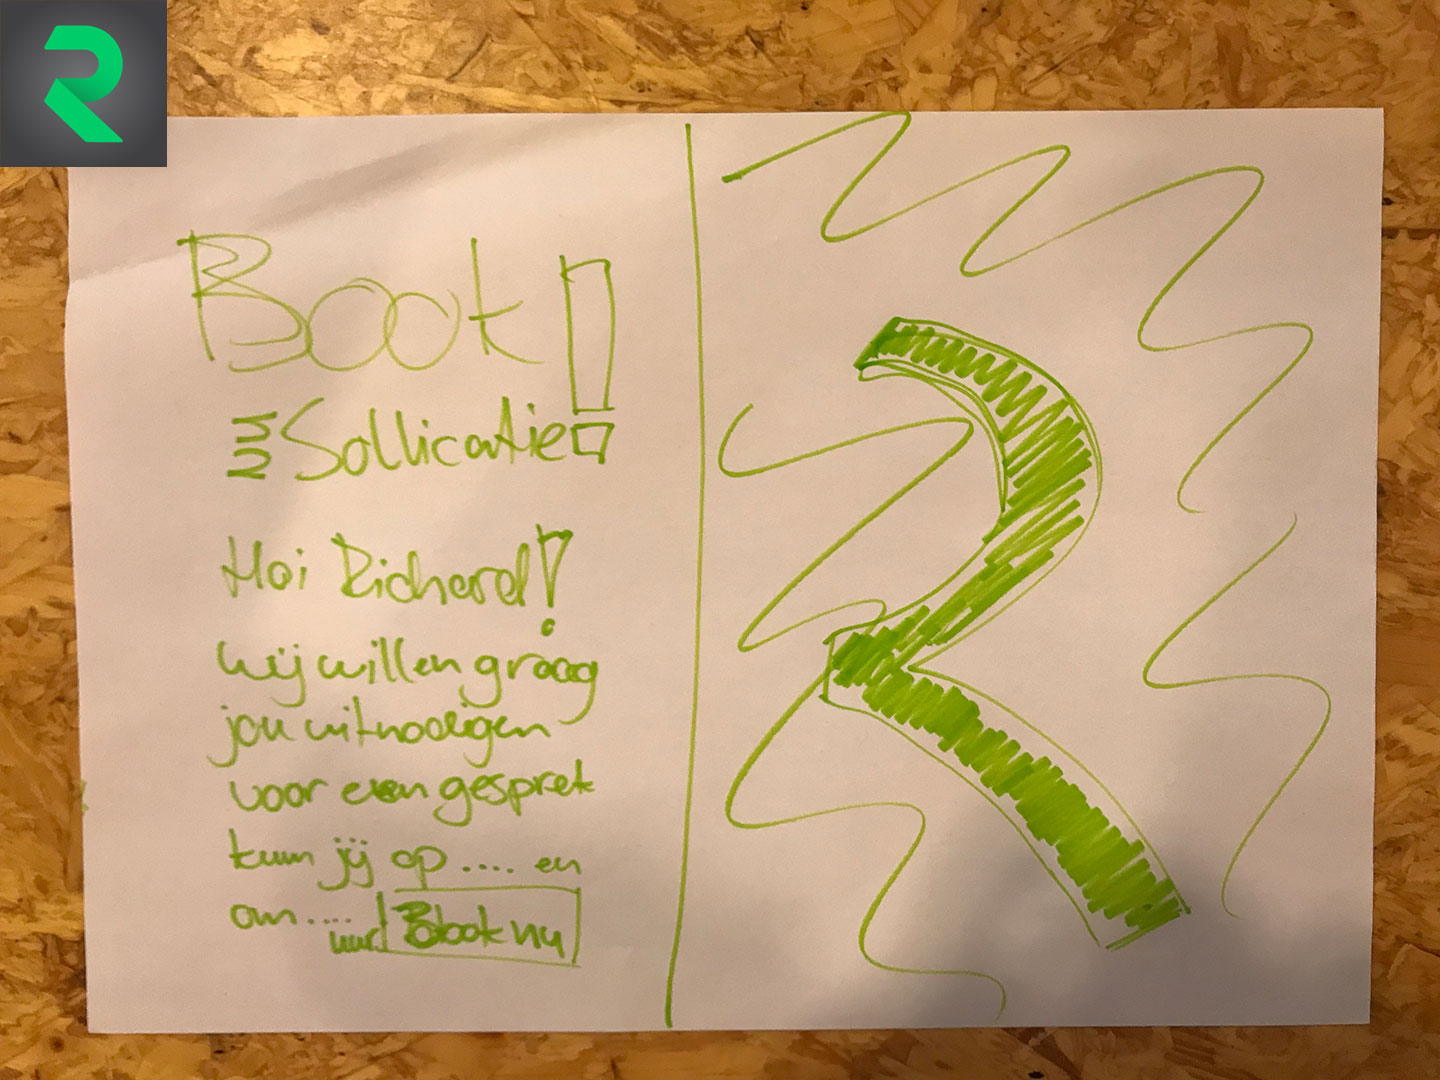 R
Book!
Sollicatie
Hoi Richard!
wij willen graag
jou uitnodigen
voor een gesprek
kun jij op .... en
om .... uur
Book nu
R